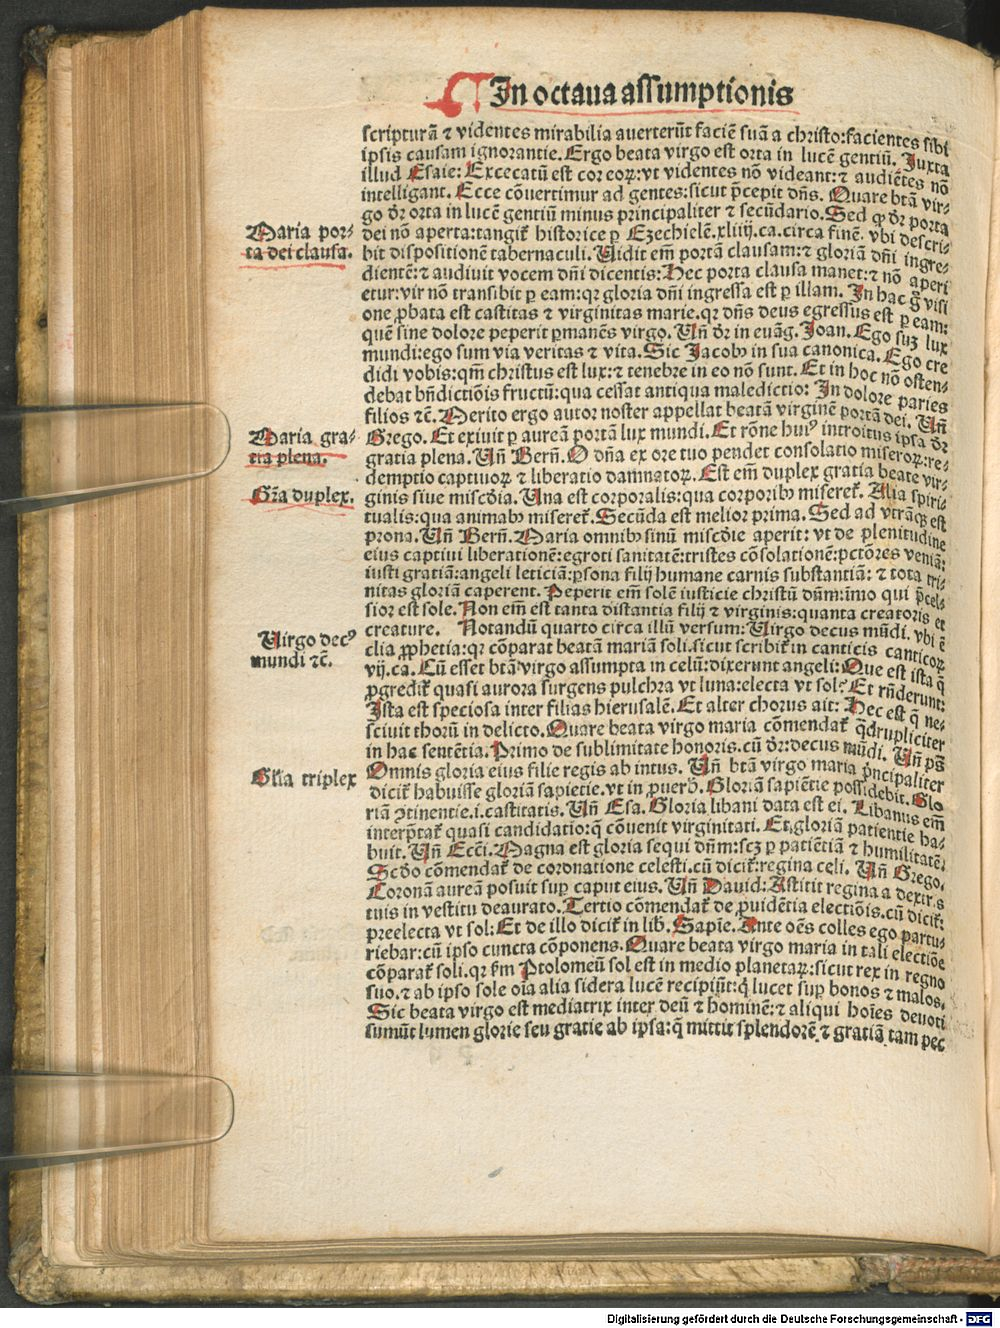 In octaua assumptionis
scripturã ⁊ videntes mirabilia auerterũt faciẽ suã a christo:facientes sibi
ipsis causam ignorantie. Ergo beata virgo est orta in lucẽ gentiũ. Juxta
illud Esaie: Excecatũ est cor eoꝝ:vt videntes nõ videant:⁊ audiẽtes nõ
intelligant. Ecce cõuertimur ad gentes:sicut p̃cepit dñs. Quare btã vir-
go dr̃ orta in lucẽ gentiũ minus principaliter ⁊ secũdario. Sed ꝙ dr̃ porta
Maria por-
ta dei clausa.
dei nõ aperta:tangit̃ historice ꝑ Ezechielẽ.xliiij.ca.circa finẽ. vbi descri-
bit dispositionẽ tabernaculi. Uidit em̃ portã clausam:⁊ gloriã dñi ingre-
dientẽ:⁊ audiuit vocem dñi dicentis:Hec porta clausa manet:⁊ nõ aperi
etur:vir nõ transibit ꝑ eam:qꝛ gloria dñi ingressa est ꝑ illam. In hac g̃ visi
one ꝓbata est castitas ⁊ virginitas marie.qꝛ dñs deus egressus est ꝑ eam:
quẽ sine dolore peperit ꝑmanẽs virgo. Uñ dr̃ in euãg. Joan. Ego suꝫ lux
mundi:ego sum via veritas ⁊ vita. Sic Jacobꝰ in sua canonica. Ego cre
didi vobis:qm̃ christus est lux:⁊ tenebre in eo nõ sunt. Et in hoc nõ osten-
debat bñdictiõis fructũ:qua cessat antiqua maledictio: In dolore paries
filios ⁊c̃. Merito ergo autor noster appellat beatã virginẽ portã dei. Uñ
Maria gra-
tia plena.
Grego. Et exiuit ꝑ aureã portã lux mundi. Et rõne huiꝰ introitus ipsa dr̃
gratia plena. Uñ Berñ. O dña ex ore tuo pendet consolatio miseroꝝ:re-
demptio captiuoꝝ ⁊ liberatio damnatoꝝ. Est em̃ duplex gratia beate vir-
Gr̃a duplex.
ginis siue miscd̃ia. Una est corporalis:qua corporibꝰ miseret̃. Alia spiri-
tualis:qua animabꝰ miseret̃. Secũda est melior prima. Sed ad vtrãqꝫ est
prona. Uñ Berñ. Maria omnibꝰ sinũ miscd̃ie aperit: vt de plenitudine
eius captiui liberationẽ:egroti sanitatẽ:tristes cõsolationẽ:pctõres veniã:
iusti gratiã:angeli leticiã:ꝑsona filij humane carnis substantiã: ⁊ tota tri-
nitas gloriã caperent. Peperit em̃ solẽ iusticie christũ dñm:imo qui p̃cel-
sior est sole. Non em̃ est tanta distantia filij ⁊ virginis:quanta creatoris et
Uirgo decꝰ
mundi ⁊c̃.
creature. Notandũ quarto circa illũ versum: Uirgo decus mũdi. vbi ẽ
clia ꝓphetia:qꝛ cõparat beatã mariã soli.sicut scribit̃ in canticis canticoꝝ
vij.ca. Cũ esset btã virgo assumpta in celũ:dixerunt angeli: Que est ista q̃
ꝓgredit̃ quasi aurora surgens pulchra vt luna:electa vt sol? Et rñderunt:
Ista est speciosa inter filias hierusalẽ. Et alter chorus ait: Hec est q̃ ne-
sciuit thorũ in delicto. Quare beata virgo maria cõmendat̃ q̃drupliciter
in hac sentẽtia. Primo de sublimitate honoris.cũ dr̃:decus mũdi. Uñ ps̃
Gl̃ia triplex
Omnis gloria eius filie regis ab intus. Uñ btã virgo maria p̃ncipaliter
dicit̃ habuisse gloriã sapiẽtie.vt in ꝓuerb̃. Gloriã sapiẽtie possidebit. Glo
riã ꝯtinentie.i.castitatis. Uñ Esa. Gloria libani data est ei. Libanus em̃
interp̃tat̃ quasi candidatio:q̃ cõuenit virginitati. Et gloriã patientie ha-
buit. Uñ Ecc̃i. Magna est gloria sequi dñm:scꝫ ꝑ patiẽtiã ⁊ humilitatẽ.
Scd̃o cõmendat̃ de coronatione celesti.cũ dicit̃:regina celi. Uñ Grego.
Coronã aureã posuit suꝑ caput eius. Uñ Dauid: Astitit regina a dextris
tuis in vestitu deaurato. Tertio cõmendat̃ de ꝓuidẽtia electiõis.cũ dicit̃:
preelecta vt sol: Et de illo dicit̃ in lib̃. Sapiẽ. Ante oẽs colles ego partu-
riebar:cũ ipso cuncta cõponens. Quare beata virgo maria in tali electiõe
cõparat̃ soli.qꝛ fm̃ Ptolomeũ sol est in medio planetaꝝ:sicut rex in regno
suo.⁊ ab ipso sole oĩa alia sidera lucẽ recipiũt:q̃ lucet suꝑ bonos ⁊ malos.
Sic beata virgo est mediatrix inter deũ ⁊ hominẽ:⁊ aliqui hoĩes deuoti
sumũt lumen glorie seu gratie ab ipsa:q̃ mittit splendorẽ ⁊ gratiã tam pec
Digitalisierung gefördert durch die Deutsche Forschungsgemeinschaft - DFG